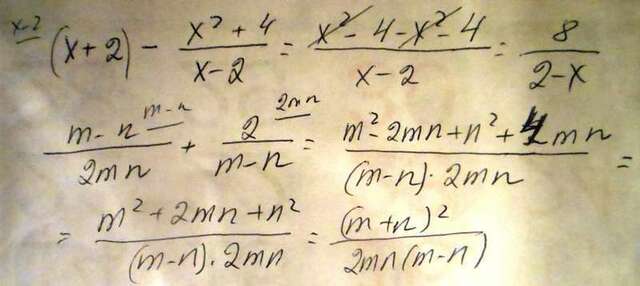 x-2 (x+2) - \frac{x² + 4}{x-2} = \frac{x² - 4 - x² - 4}{x-2} = \frac{8}{2-x}
\frac{m-n}{2mn} m-n + \frac{2}{m-n} 2mn = \frac{m² - 2mn + n² + 4mn}{(m-n)·2mn} =
= \frac{m² + 2mn + n²}{(m-n)·2mn} = \frac{(m+n)²}{2mn(m-n)}